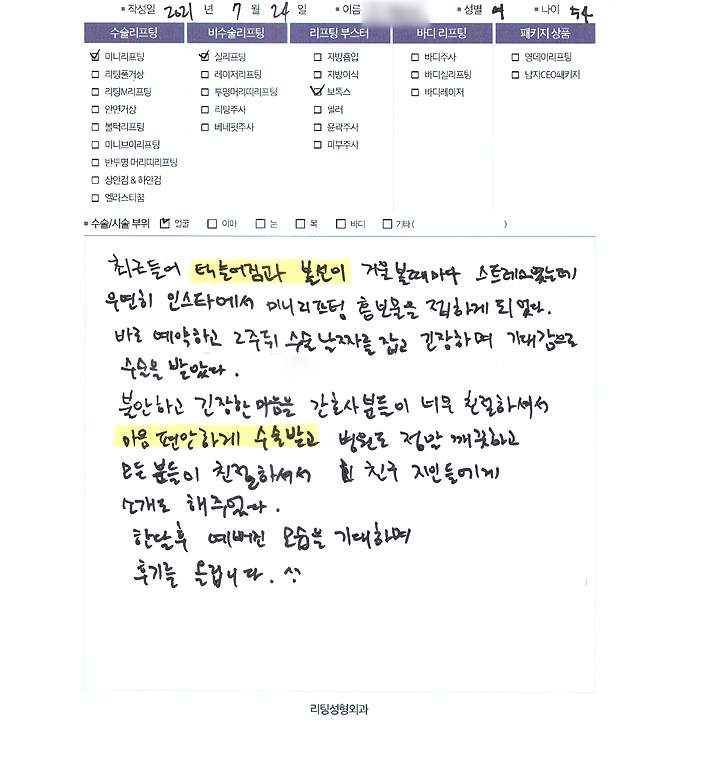 ▪작성일 2021 년 7 월 24 일 ▪이름 ▪성별 여 ▪나이 54
수술리프팅 비수술리프팅 리프팅 부스터 바디 리프팅 패키지 상품
☑ 미니리프팅 ☑ 실리프팅 ☐ 지방흡입 ☐ 바디주사 ☐ 영데이리프팅
☐ 리팅풀거상 ☐ 레이저리프팅 ☐ 지방이식 ☐ 바디실리프팅 ☐ 남자CEO패키지
☐ 리팅M리프팅 ☐ 투명머리띠리프팅 ☑ 보톡스 ☐ 바디레이저
☐ 안면거상 ☐ 리팅주사 ☐ 필러
☐ 볼턱리프팅 ☐ 베네핏주사 ☐ 윤곽주사
☐ 미니브이리프팅 ☐ 피부주사
☐ 반투명 머리띠리프팅
☐ 상안검 & 하안검
☐ 엘라스티꿈
▪수술/시술 부위 ☑ 얼굴 ☐ 이마 ☐ 눈 ☐ 목 ☐ 바디 ☐ 기타( )
최근들어 턱늘어짐과 볼살이 거울볼때마다 스트레스였는데
우연히 인스타에서 미니리프팅 홍보물을 접하게 되었다.
바로 예약하고 2주뒤 수술날짜를 잡고 긴장하며 기대감으로
수술을 받았다.
불안하고 긴장한 마음을 간호사분들이 너무 친절하셔서
마음 편안하게 수술받고 병원도 정말 깨끗하고
모든분들이 친절하셔서 친구 지인들에게
소개도 해주었다.
한달후 예뻐진 모습을 기대하며
후기를 올립니다. ^^
리팅성형외과